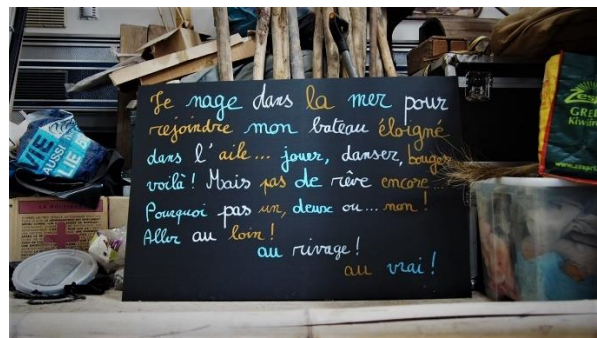 Je nage dans la mer pour
rejoindre mon bateau éloigné
dans l'aile... jouer, danser, bouger
voilà ! Mais pas de rêve encore...
Pourquoi pas un, deux ou... non !
Aller au loin !
au rivage !
au vrai !
VIE
AUSSI
LIE
GRE
Kiwi